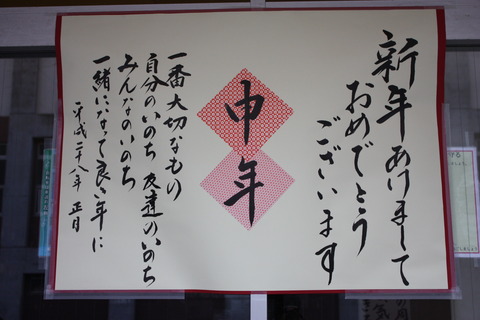 新年あけまして
おめでとう
ございます
申年
一番大切なもの
自分のいのち 友達のいのち
みんなのいのち
一緒になって良い年に
平成二十八年 正月